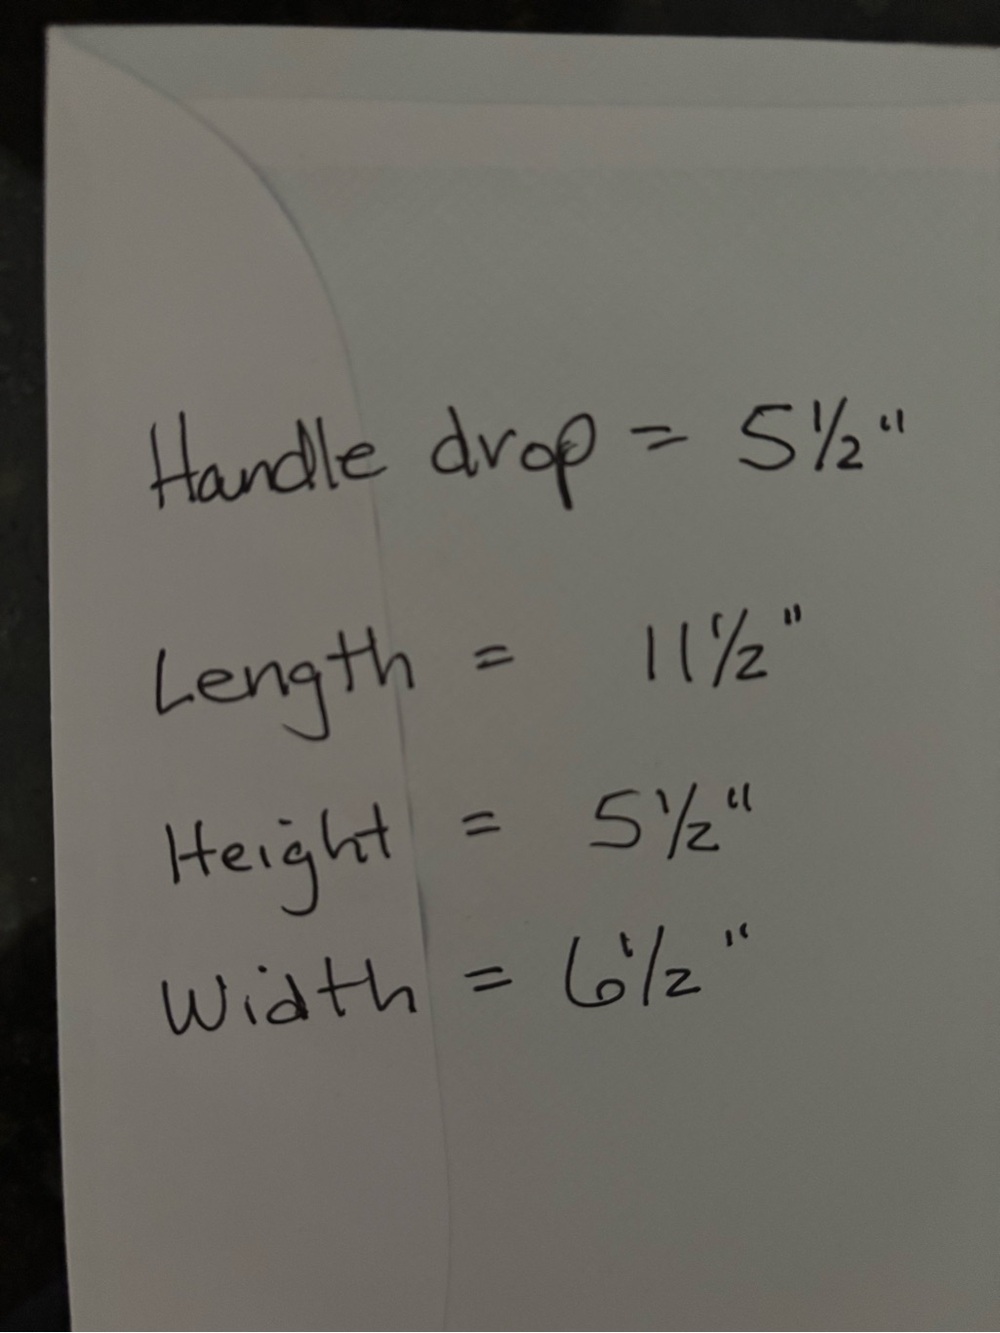 Handle drop = 5 1/2"
Length = 11 1/2"
Height = 5 1/2"
Width = 6 1/2"